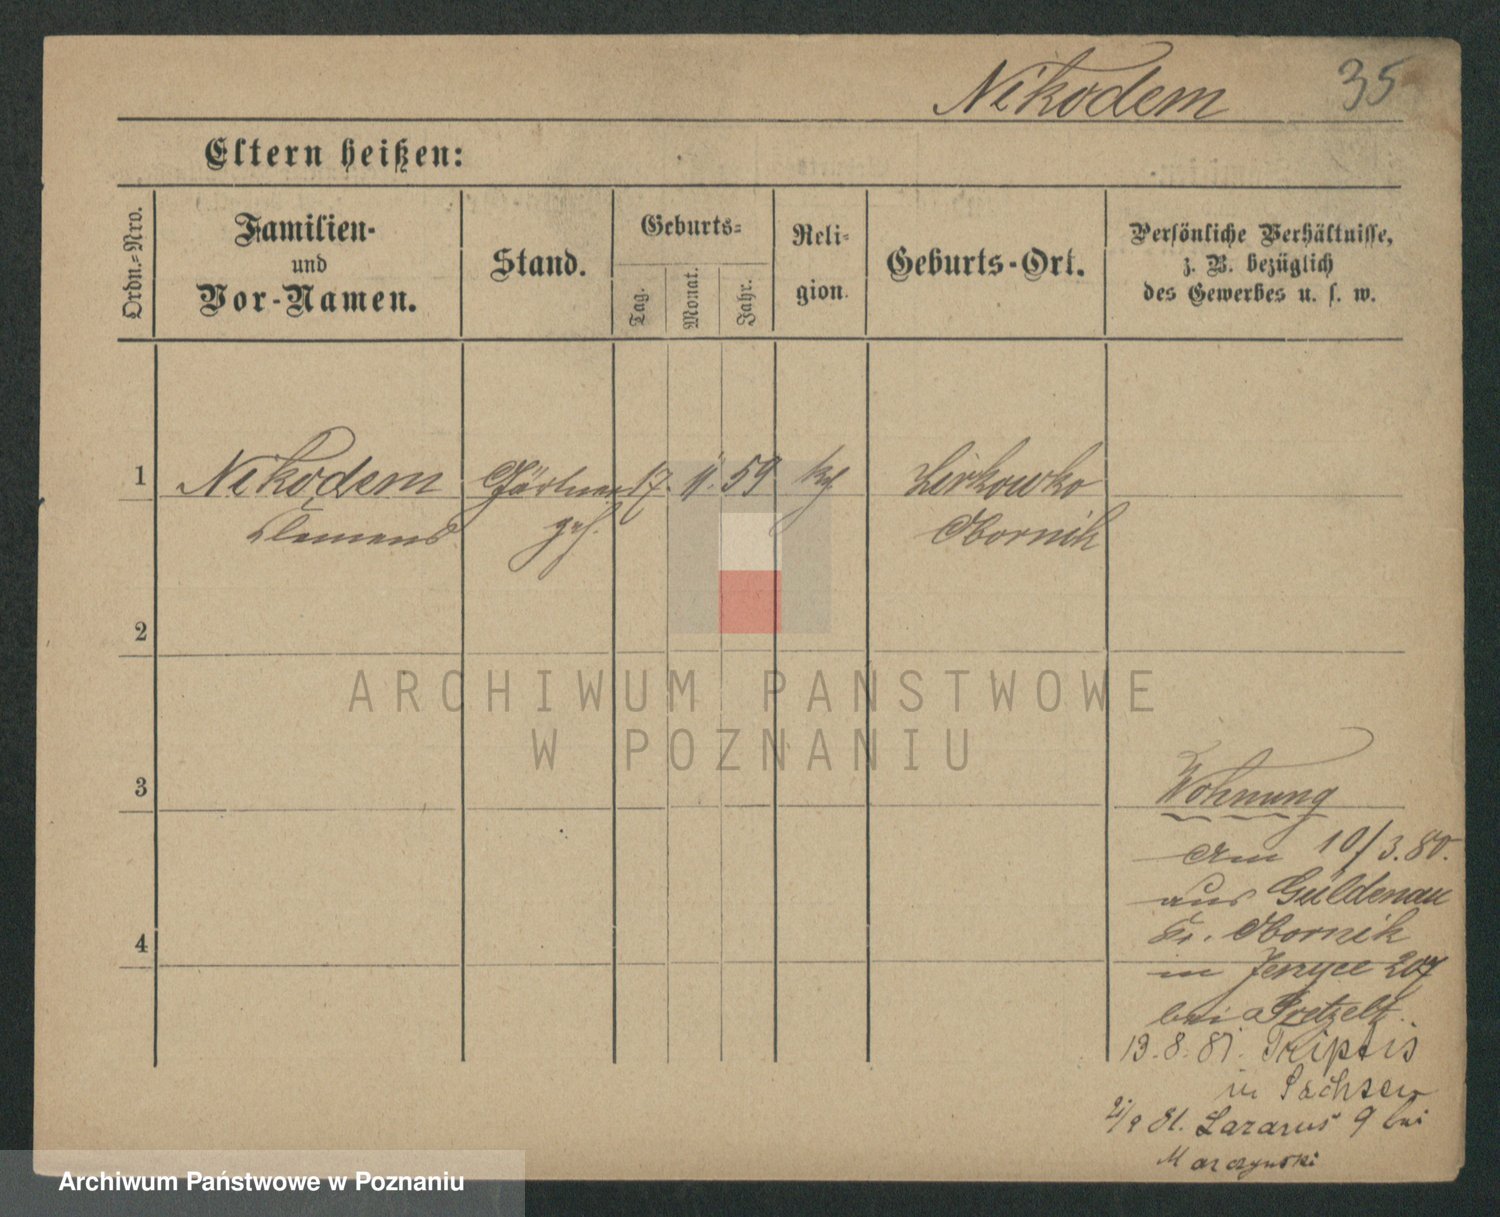 Nikodem 35
Eltern heißen:
Ordn.=Nro.
Familien-
und
Vor-Namen.
Stand.
Geburts=
Tag.
Monat.
Jahr.
Reli=
gion.
Geburts-Ort.
Persönliche Verhältnisse,
z. B. bezüglich
des Gewerbes u. s. w.
1 Nikodem Gärtner 17. 11. 59 kth
Clemens geh. Obornik
2
ARCHIWUM PAŃSTWOWE
W POZNANIU
3 Wohnung
Am 10/3.80.
aus Güldenau
Kr. Obornik
4 in Jerzyce 207
bei Pretzelt
13.8.81. Triptis
in Sachsen
St. Lazarus 9 bei
Marczynski
Archiwum Państwowe w Poznaniu